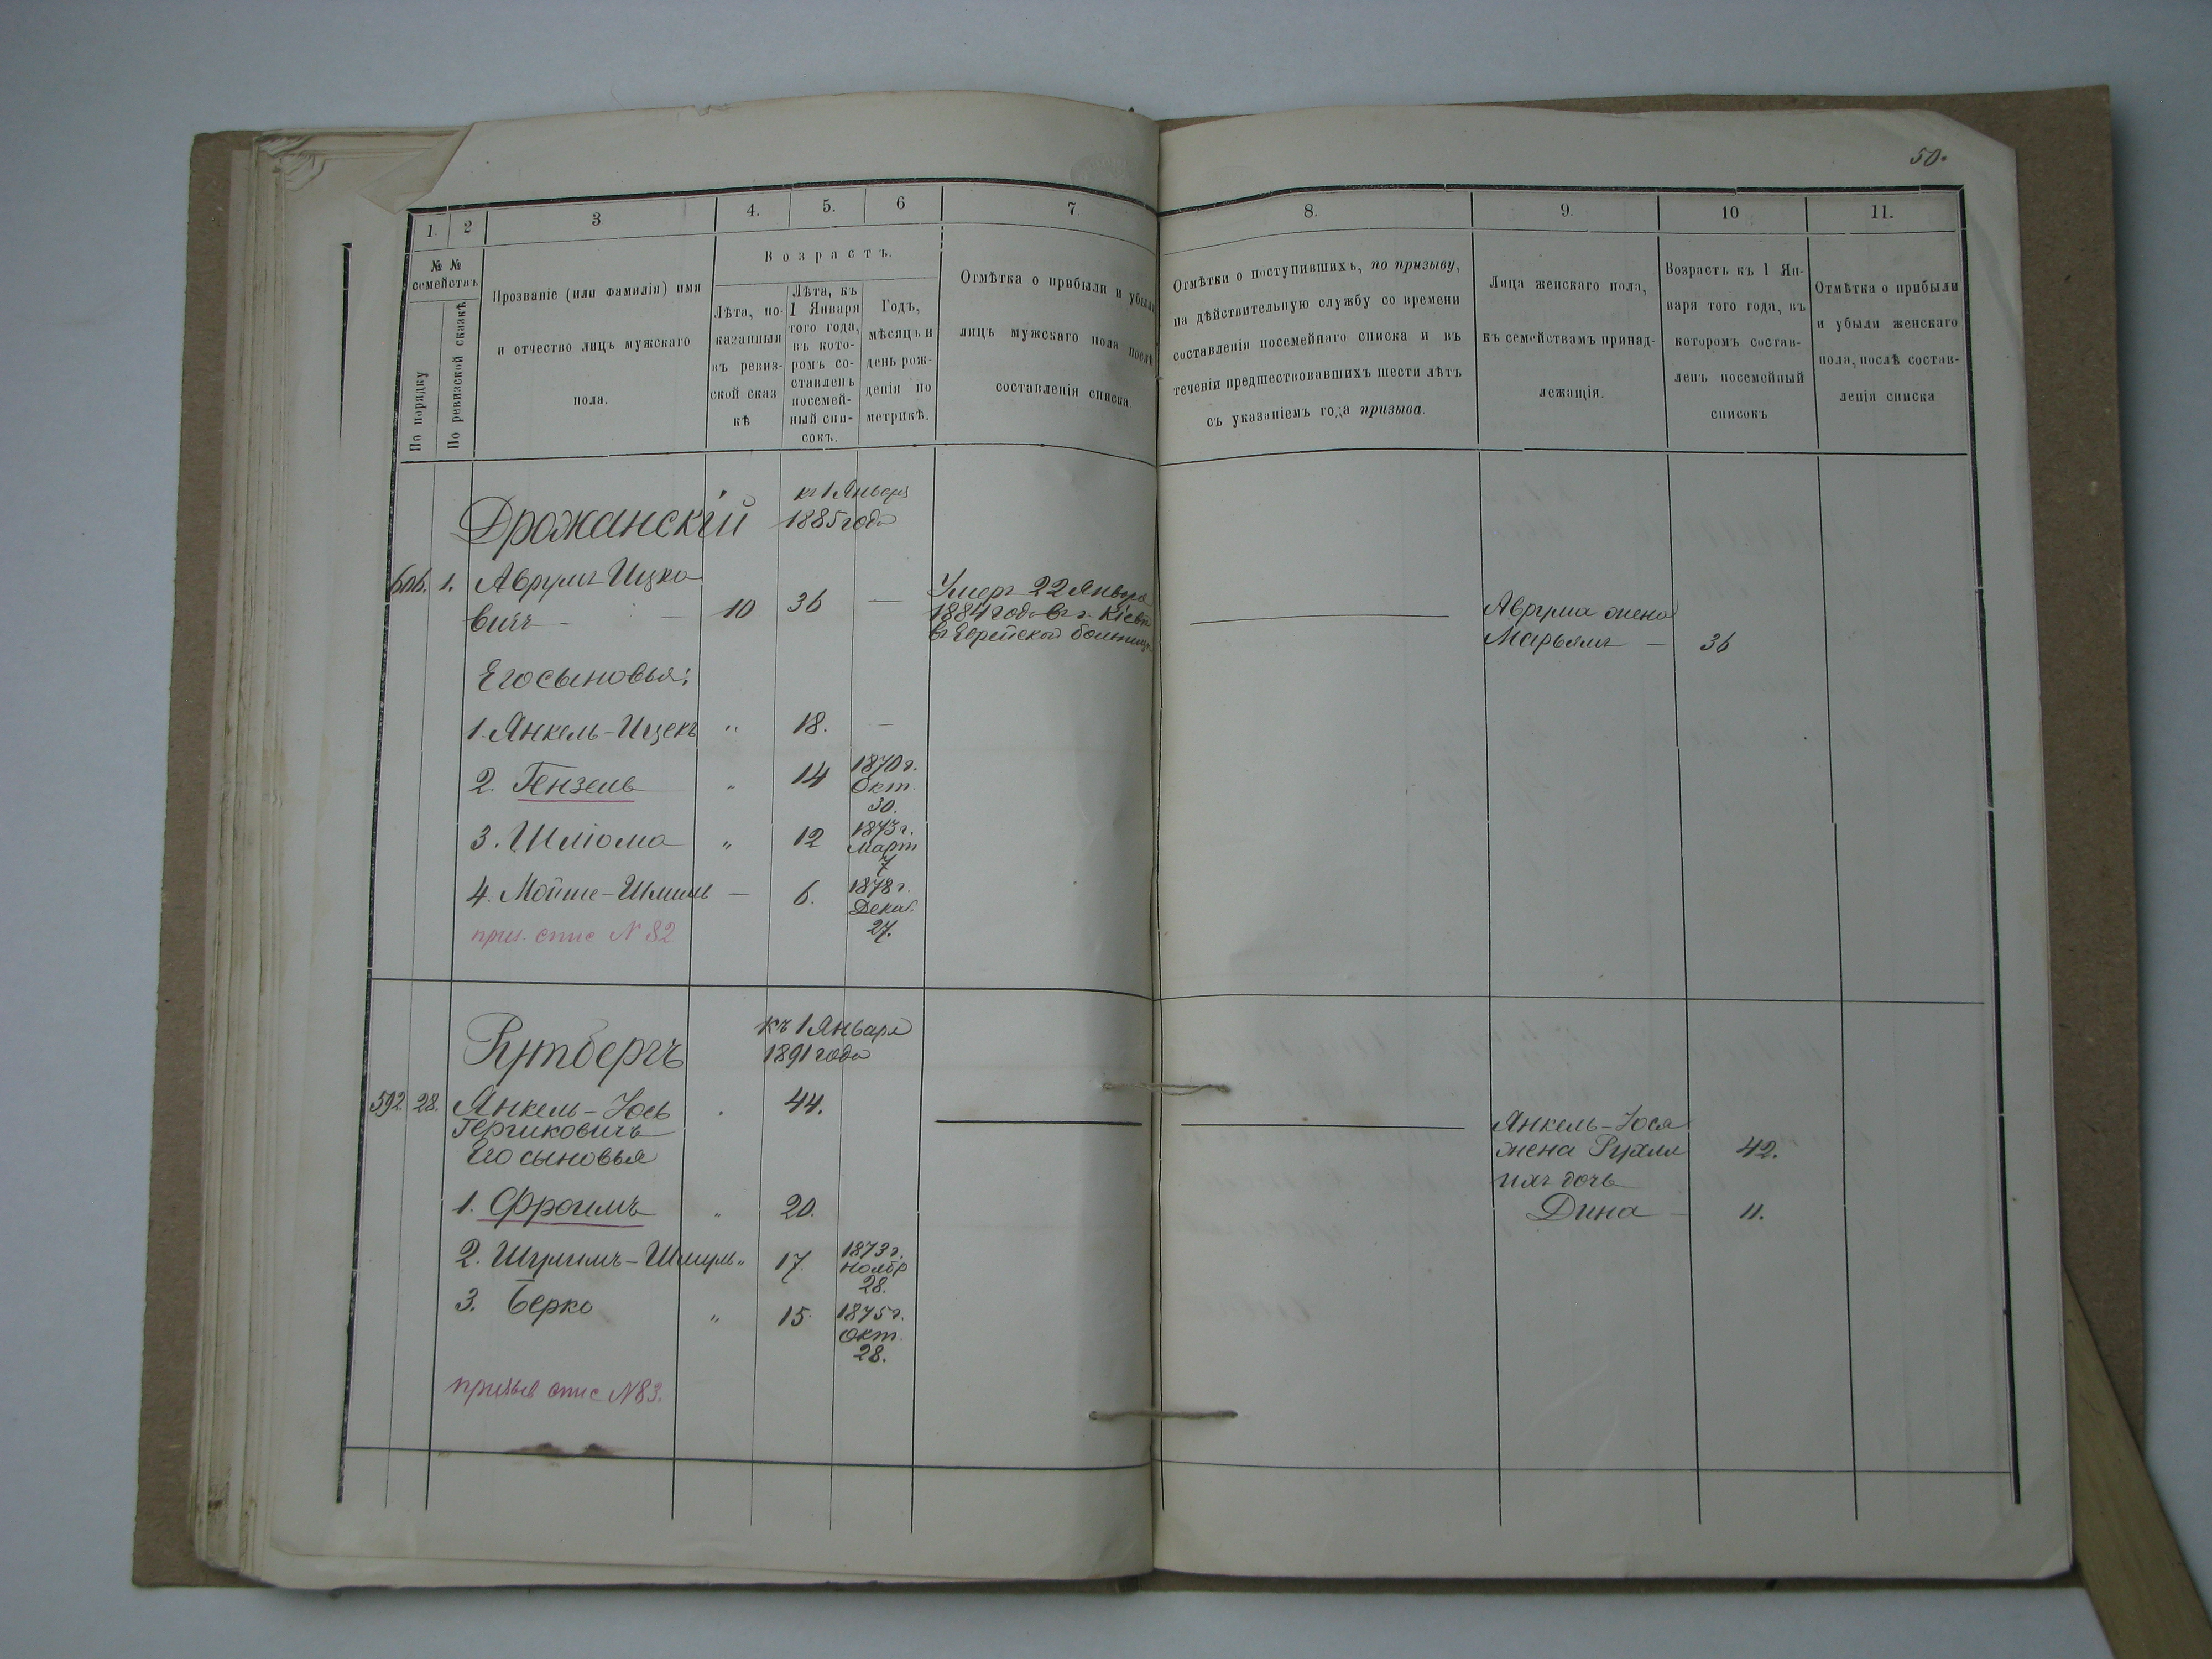 50.
1. 2 3 4. 5. 6 7. 8. 9. 10 11.
№ № семействъ
По порядку
По ревизской сказкѣ
Прозваніе (или фамилія) имя
и отчество лицъ мужскаго
пола.
Возрастъ.
Лѣта, по-
казанныя
въ ревиз-
ской сказ
кѣ
Лѣта, къ
1 Января
того года,
въ кото-
ромъ со-
ставленъ
посемей-
ный спи-
сокъ.
Годъ,
мѣсяцъ и
день рож-
денія по
метрикѣ.
Отмѣтка о прибыли и убыли
лицъ мужскаго пола послѣ
составленія списка.
Отмѣтки о поступившихъ, по призыву,
на дѣйствительную службу со времени
составленія посемейнаго списка и въ
теченіи предшествовавшихъ шести лѣтъ
съ указаніемъ года призыва.
Лица женскаго пола,
къ семействамъ принад-
лежащія.
Возрастъ къ 1 Ян-
варя того года, въ
которомъ состав-
ленъ посемейный
списокъ
Отмѣтка о прибыли
и убыли женскаго
пола, послѣ состав-
ленія списка
Дрожанскій
къ 1 Января
1885 года
1. Аврумъ Ицко
вичъ — 10 36 —
Умеръ 22 Января
1884 года въ г. Кіевѣ
въ Еврейской больницѣ
Аврума жена
Марьямъ — 36
Его сыновья:
1. Янкель-Ицекъ " 18. —
2. Гензель " 14 1870 г.
Окт.
30.
3. Шліома " 12 1873 г.
Март
7
4. Мойше-Шмиль — 6. 1878 г.
Декаб.
27.
приз. спис № 82
Рутбергъ
къ 1 Января
1891 года
592. 28. Янкель-Іось 44.
Гершковичъ
Его сыновья
Янкель-Іося
жена Рухля 42.
ихъ дочь
Дина — 11.
1. Фроимъ " 20.
2. Шулимъ-Шмуль " 17. 1873 г.
Ноябр
28.
3. Берко " 15. 1875 г.
Окт.
28.
призыв спис № 83.